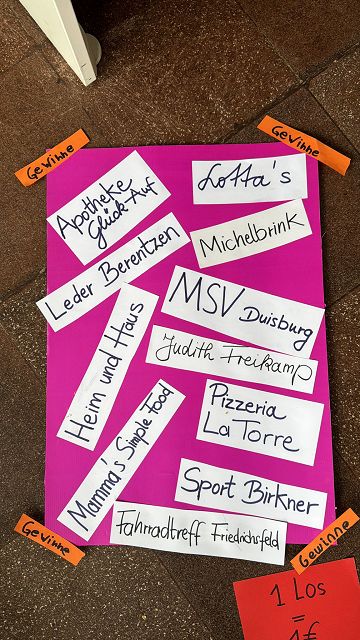 Gewinne
Gewinne
Apotheke
Glück-Auf
Lotta's
Michelbrink
Leder Berentzen
MSV Duisburg
Heim und Haus
Judith Freikamp
Pizzeria
La Torre
Mamma's Simple Food
Sport Birkner
Fahrradtreff Friedrichsfeld
Gewinne
Gewinne
1 Los
=
1€